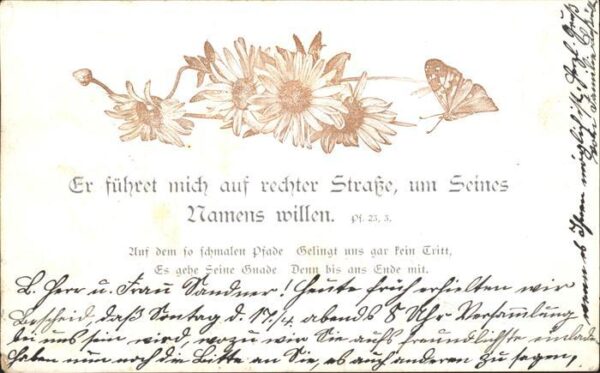 Er führet mich auf rechter Straße, um Seines
Namens willen. Ps. 23, 3.
Auf dem so schmalen Pfade Gelingt uns gar kein Tritt,
Es gehe Seine Gnade Denn bis ans Ende mit.
L. Herr u. Frau Sandner! Heute früh erhielten wir
Bescheid, daß Sontag d. 17/4. abends 8 Uhr Versam̅lung
bei uns sein wird, wozu wir Sie aufs freundlichste einlade
haben nun noch die Bitte an Sie, es auch anderen zu sagen,
wenn es Ihnen möglich ist. Gruß
Familie